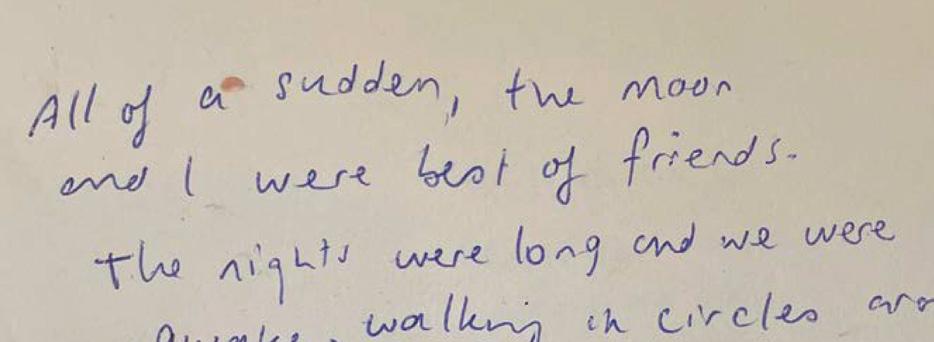 All of a sudden, the moon
and I were best of friends.
the nights were long and we were
awake, walking in circles